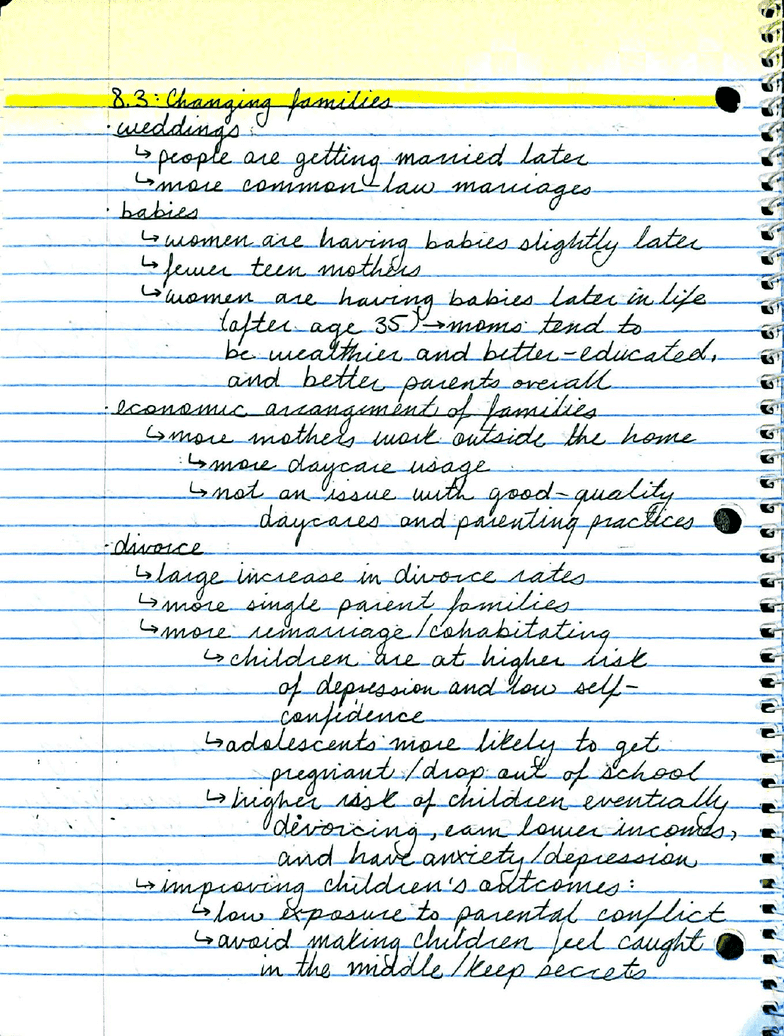 8.3: Changing families
· weddings:
↳ people are getting married later
↳ more common-law marriages
· babies
↳ women are having babies slightly later
↳ fewer teen mothers
↳ women are having babies later in life
(after age 35) → moms tend to
be wealthier and better-educated,
and better parents overall
· economic arrangement of families
↳ more mothers work outside the home
↳ more daycare usage
↳ not an issue with good-quality
daycares and parenting practices
· divorce
↳ large increase in divorce rates
↳ more single parent families
↳ more remarriage/cohabitating
↳ children are at higher risk
of depression and low self-
confidence
↳ adolescents more likely to get
pregnant/drop out of school
↳ higher risk of children eventually
divorcing, earn lower incomes,
and have anxiety/depression
↳ improving children's outcomes:
↳ low exposure to parental conflict
↳ avoid making children feel caught
in the middle/keep secrets